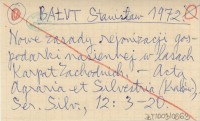 BAŁUT Stanisław 1972.
Nowe zasady rejonizacji gos-
podarki nasiennej w lasach
Karpat Zachodnich. - Acta
Agraria et Silvestria (Kraków).
Ser. Silv., 12: 3-20.